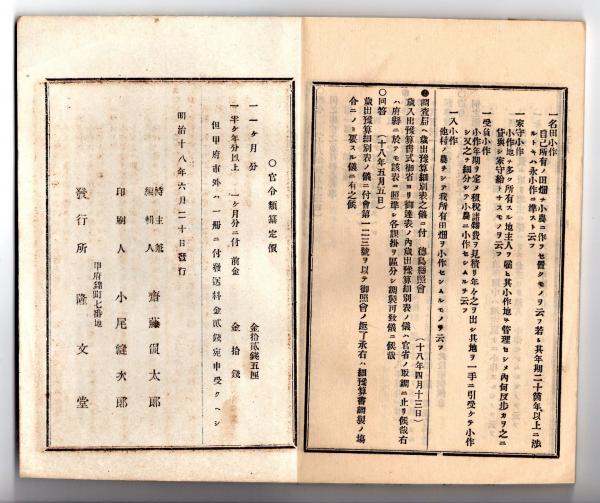 一名田小作
自己所有ノ田畑ヲ小農ニ作ラセ置クモノヲ云フ若シ其年期二十箇年以上ニ渉
ルトキハ永小作ニ準スト云フ
一家守小作
小作地ヲ多ク所有スル地主人ヲ雇ヒ其小作地ヲ管理セシメ内何反歩カヲ之ニ
貸與シ家守給トナスモノヲ云フ
一受負小作
小作年期ヲ定メ租税諸雜費ヲ見積リ年々之ヲ出シ其地ヲ一手ニ引受ケテ小作
シ又之ヲ細分シテ小農ニ小作セシムルヲ云フ
一入小作
他村ノ農ヲシテ我所有田畑ヲ小作セシムルモノヲ云フ
調査局ヘ歳出豫算細別表之儀ニ付 徳島縣照會 (十八年四月十三日)
歳入出豫算書式御省ヨリ御達表ノ内歳出豫算細別表ノ儀ハ官省ノ取調ニ止リ候哉右
ハ府縣ニ於テモ該表ニ照準シ各課掛リ區分シ調製可致儀ニ候哉
○回答 (十八年五月五日)
歳出豫算細別表ノ儀ニ付會第一二三號ヲ以テ御照會ノ趣了承右ハ細豫算書調製ノ塲
合ニノミ要スル儀ニ有之候
○官令類纂定價
一一ヶ月分 金拾貳錢五厘
一半ヶ年分以上 一ヶ月分ニ付 前金 金拾錢
但甲府市外ハ一冊ニ付發送料金貳錢宛申受クヘシ
明治十八年六月二十日發行
編輯人 齋藤
印刷人 小尾縫次郎
甲府錦町七番地
發行所 隆文堂